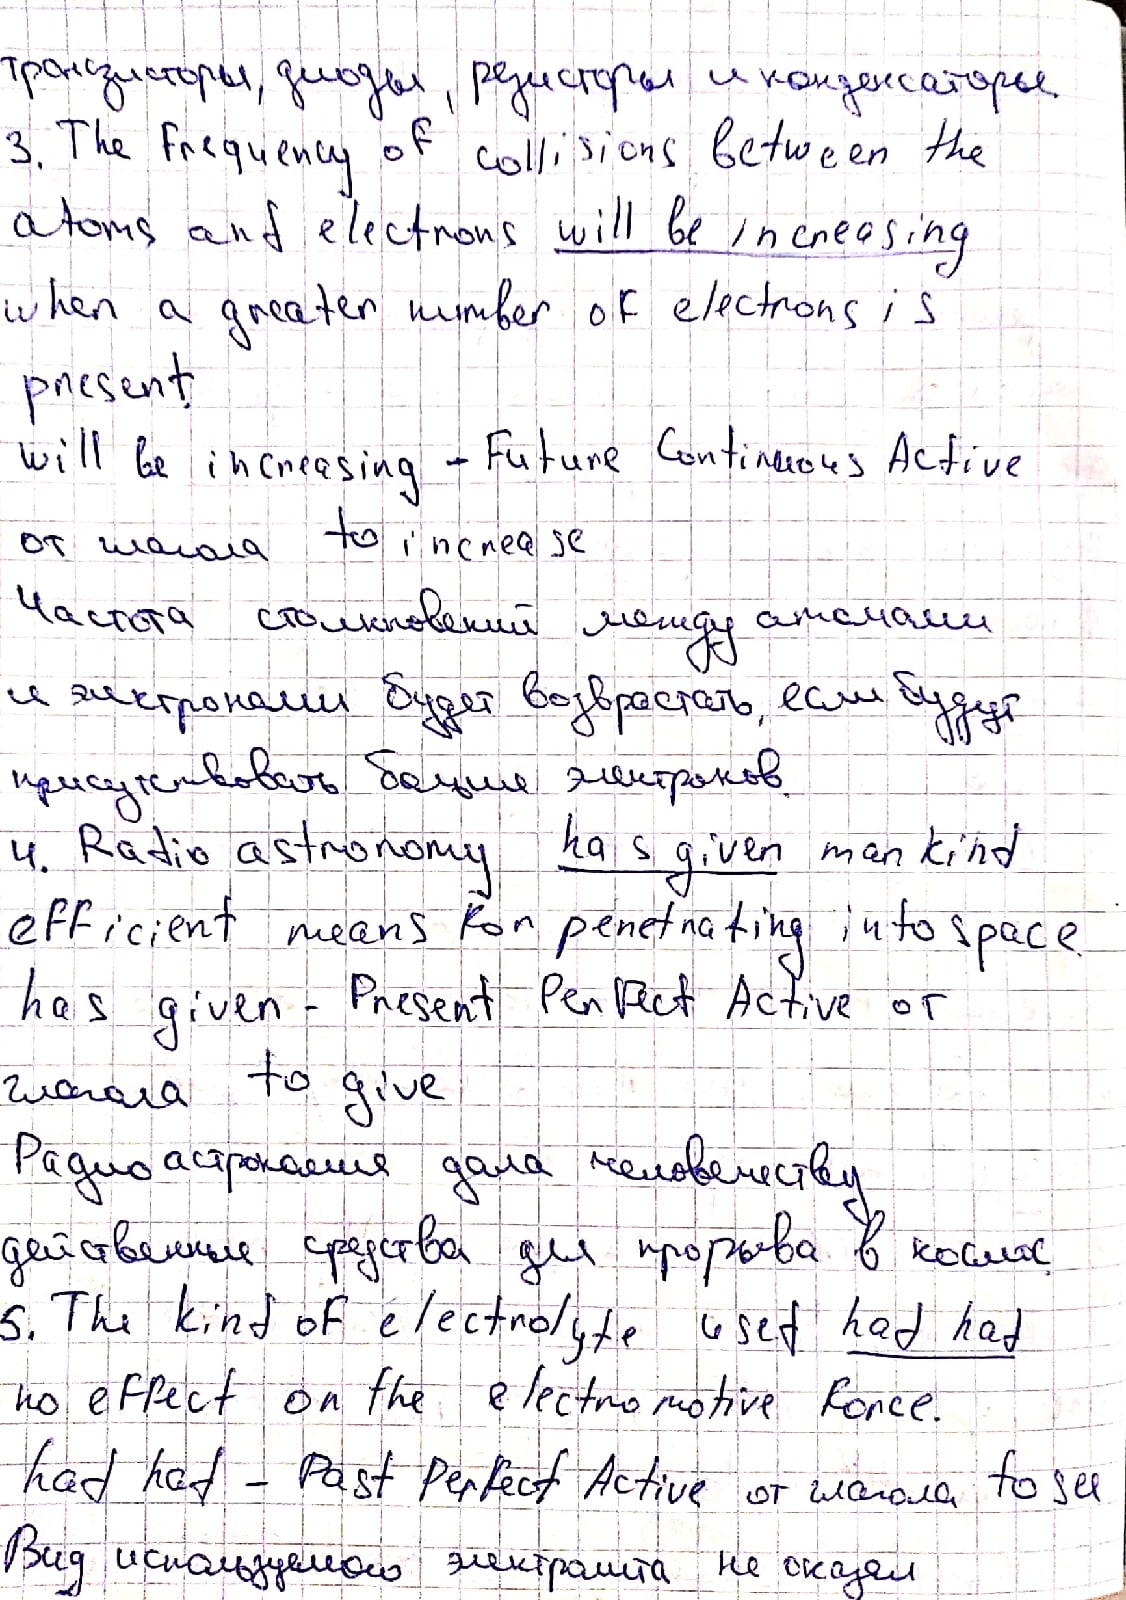 транзисторы, диоды, резисторы и конденсаторы.
3. The frequency of collisions between the
atoms and electrons will be increasing
when a greater number of electrons is
present.
will be increasing - Future Continuous Active
от глагола to increase
Частота столкновений между атомами
и электронами будет возврастать, если будут
присутствовать больше электронов.
4. Radio astronomy has given mankind
efficient means for penetrating into space.
has given - Present Perfect Active от
глагола to give
Радиоастрономия дала человечеству
действенные средства для прорыва в космос.
5. The kind of electrolyte used had had
no effect on the electromotive force.
had had - Past Perfect Active от глагола to
Вид используемого электролита не оказал